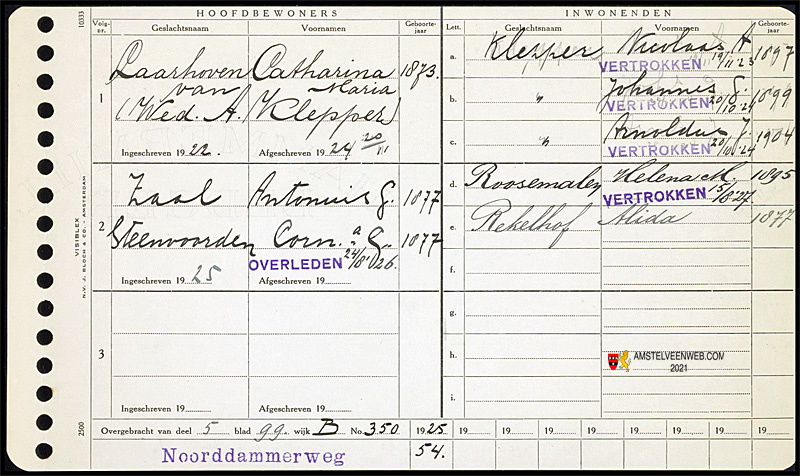 HOOFDBEWONERS
Volg-nr. Geslachtsnaam Voornamen Geboorte-jaar
1 Laarhoven Catharina 1873.
van Maria
(Wed. A. Klepper)
Ingeschreven 1922. Afgeschreven 1924 20/11
2 Zaal Antonius G. 1877
Steenvoorden Corn.a G. 1877
OVERLEDEN 24/8 '26.
Ingeschreven 1925 Afgeschreven 19
3
Ingeschreven 19 Afgeschreven 19
INWONENDEN
Lett. Geslachtsnaam Voornamen Geboorte-jaar
a. Klepper Nicolaas A 1897
VERTROKKEN 19/11 '23
b. " Johannes G. 1899
VERTROKKEN 20/10 '24
c. " Arnoldus J. 1904
VERTROKKEN 20/10 '24
d. Roosemalen Helena M. 1895
VERTROKKEN 15/8 '27
e. Rekelhof Alida 1877
f.
g.
h. AMSTELVEENWEB.COM
2021
i.
Overgebracht van deel 5 blad 99. wijk B No. 350 1925 19 19 19 19 19 19 19 19
Noorddammerweg 54.
10333
VISIBLEX
N.V. J. BLOCH & CO. - AMSTERDAM
2500